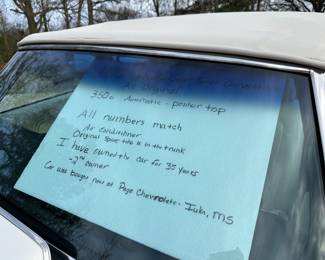 original
350 - Automatic - power top
All numbers match
Air conditioner
Original spare tire is in the trunk
I have owned the car for 35 years
- 2nd owner
Car was bought new at Page Chevrolet - Iuka, MS